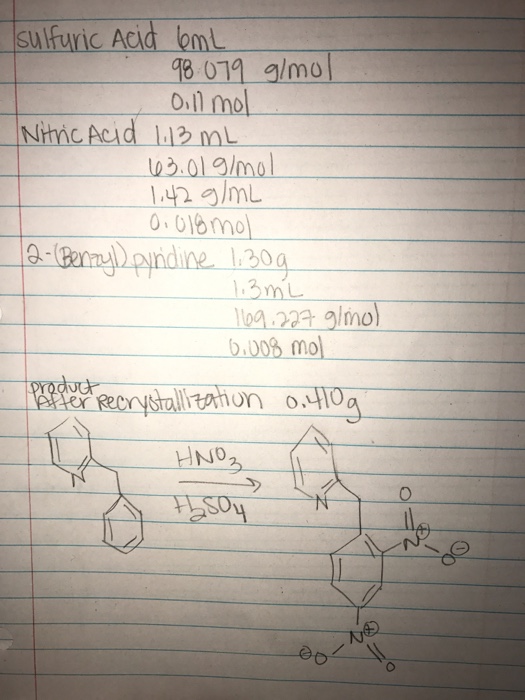 Sulfuric Acid 6mL
98.079 g/mol
0.11 mol
Nitric Acid 1.13 mL
63.01 g/mol
1.42 g/mL
0.018 mol
2-(Benzyl) pyridine 1.30g
1.3mL
169.227 g/mol
0.008 mol
product
After Recrystallization 0.410g
HNO3
H2SO4
N
N
O
N⊕
O⊖
N⊕
⊖O
O